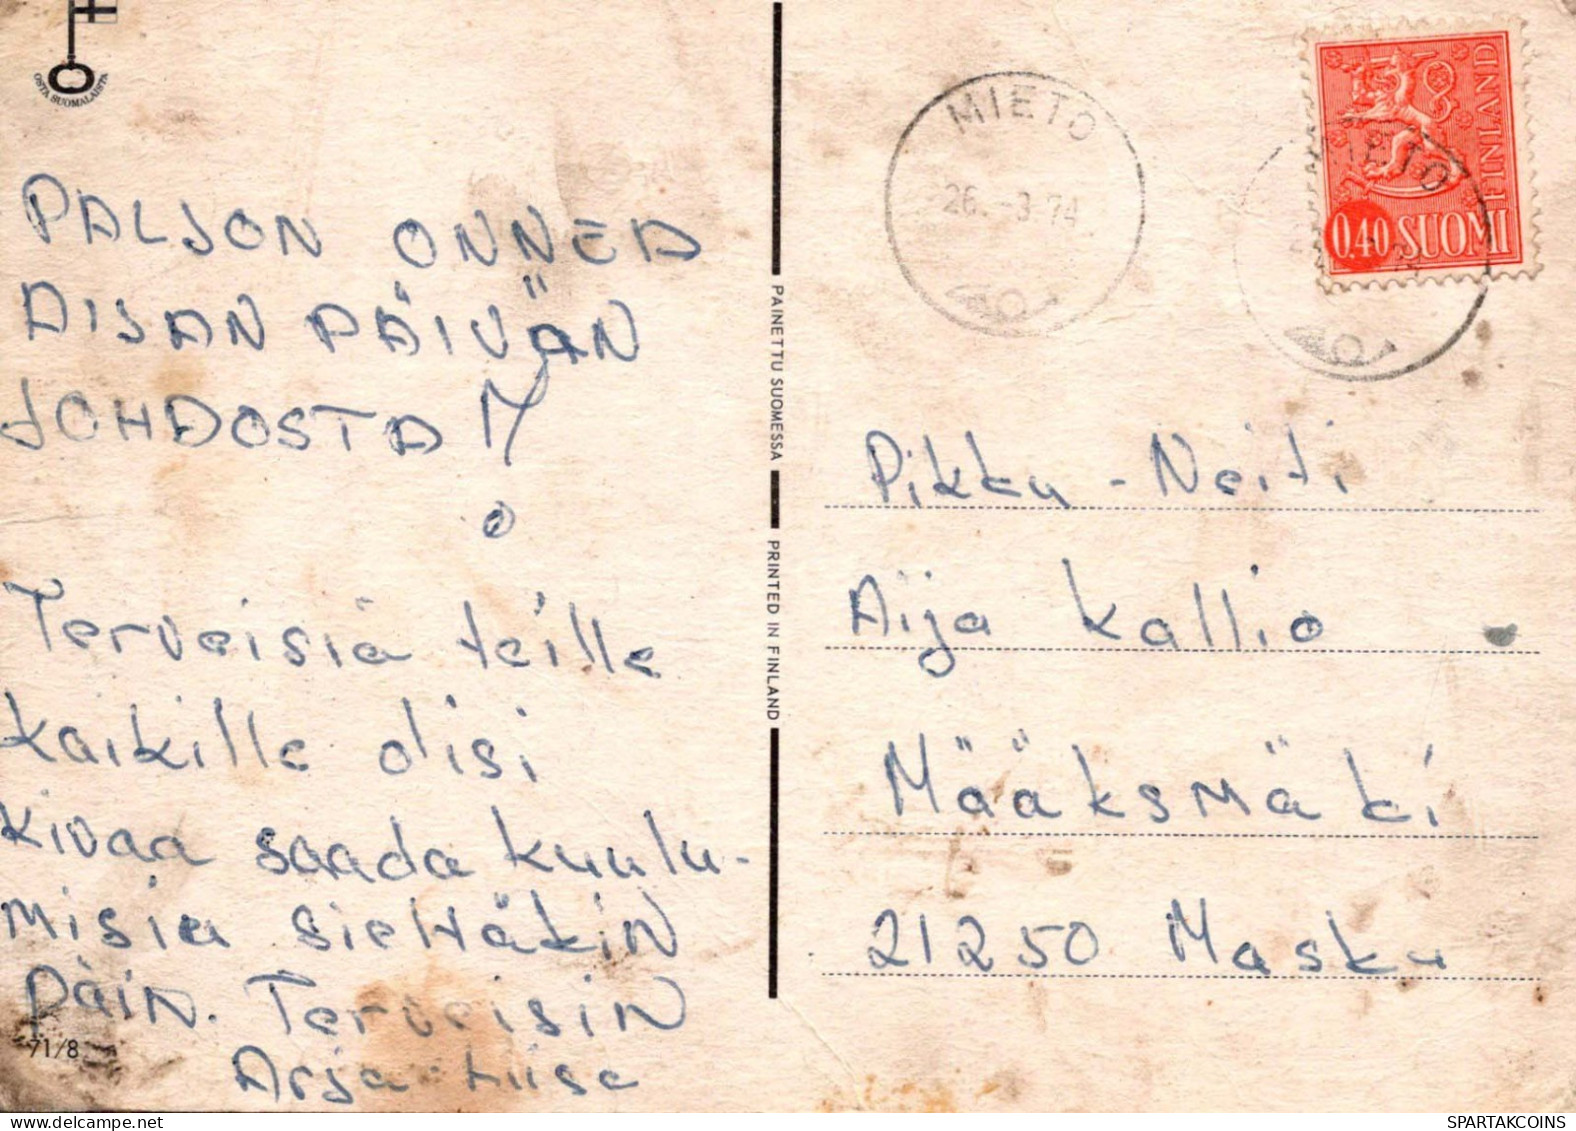 OSTA SUOMALAISTA
PALJON ONNEA
AIJAN PÄIVÄN
JOHDOSTA !
Terveisiä teille
kaikille olisi
kivaa saada kuulu-
misia sieltäkin
päin. Terveisin
Arja-Liisa
71/8
PAINETTU SUOMESSA
PRINTED IN FINLAND
MIETO
26.-3.74
MIETO
FINLAND
0.40 SUOMI
Pikku-Neiti
Aija Kallio
Määksmäki
21250 Masku
SPARTAKCOINS